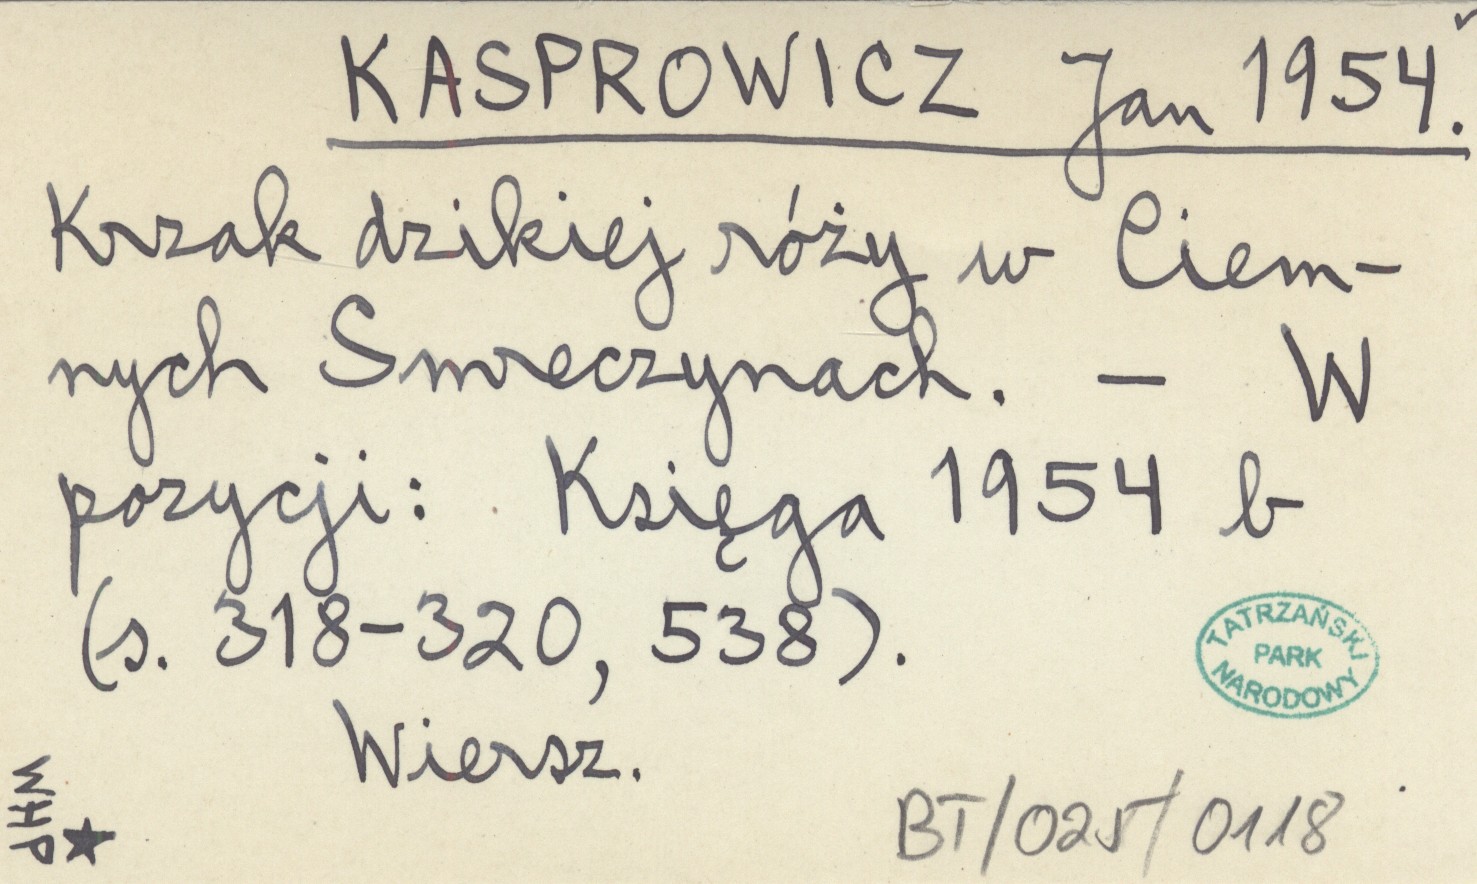 KASPROWICZ Jan 1954.
Krzak dzikiej róży w Ciem-
nych Smreczynach. — W
pozycji: Księga 1954 b
(s. 318-320, 538).
Wiersz.
TATRZAŃSKI
PARK
NARODOWY
WHP
BT/025/0118